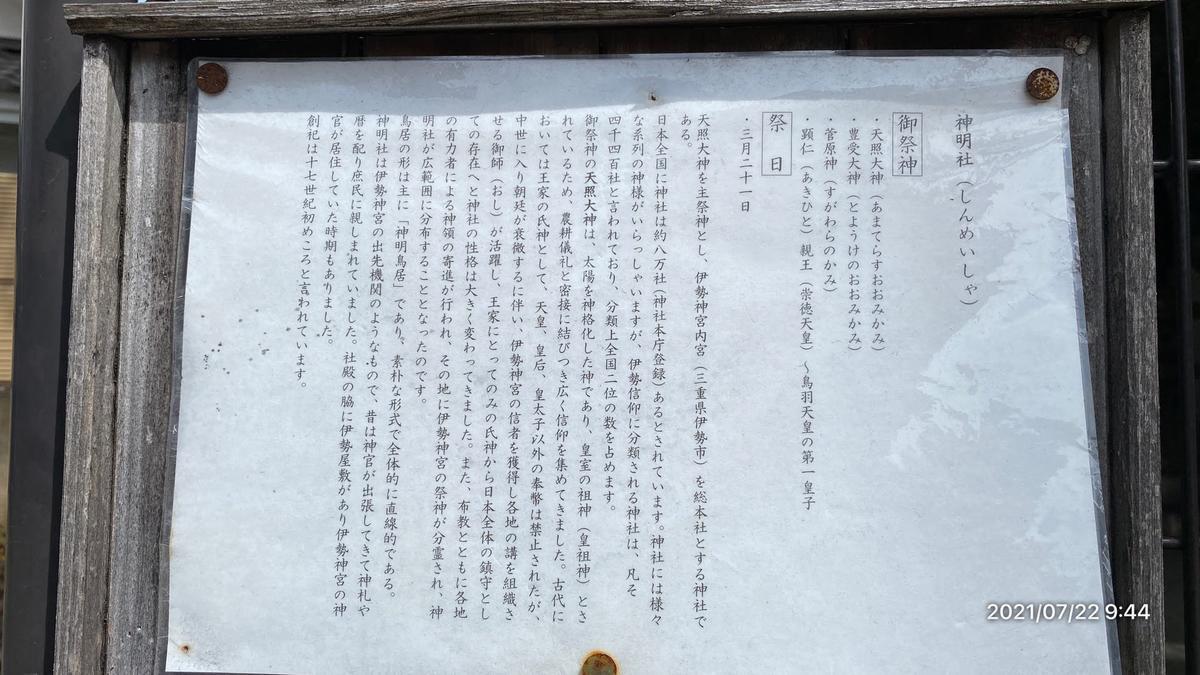 神明社（しんめいしゃ）
御祭神
・天照大神（あまてらすおおみかみ）
・豊受大神（とようけのおおみかみ）
・菅原神（すがわらのかみ）
・顕仁（あきひと）親王（崇徳天皇）～鳥羽天皇の第一皇子
祭日
・三月二十一日
天照大神を主祭神とし、伊勢神宮内宮（三重県伊勢市）を総本社とする神社で
ある。
日本全国に神社は約八万社（神社本庁登録）あるとされています。神社には様々
な系列の神様がいらっしゃいますが、伊勢信仰に分類される神社は、凡そ
四千四百社と言われており、分類上全国二位の数を占めます。
御祭神の天照大神は、太陽を神格化した神であり、皇室の祖神（皇祖神）とさ
れているため、農耕儀礼と密接に結びつき広く信仰を集めてきました。古代に
おいては王家の氏神として、天皇、皇后、皇太子以外の奉幣は禁止されたが、
中世に入り朝廷が衰微するに伴い、伊勢神宮の信者を獲得し各地の講を組織さ
せる御師（おし）が活躍し、王家にとってのみの氏神から日本全体の鎮守とし
ての存在へと神社の性格は大きく変わってきました。また、布教とともに各地
の有力者による神領の寄進が行われ、その地に伊勢神宮の祭神が分霊され、神
明社が広範囲に分布することとなったのです。
鳥居の形は主に「神明鳥居」であり、素朴な形式で全体的に直線的である。
神明社は伊勢神宮の出先機関のようなもので、昔は神官が出張してきて神札や
暦を配り庶民に親しまれていました。社殿の脇に伊勢屋敷があり伊勢神宮の神
官が居住していた時期もありました。
創祀は十七世紀初めころと言われています。
2021/07/22 9:44